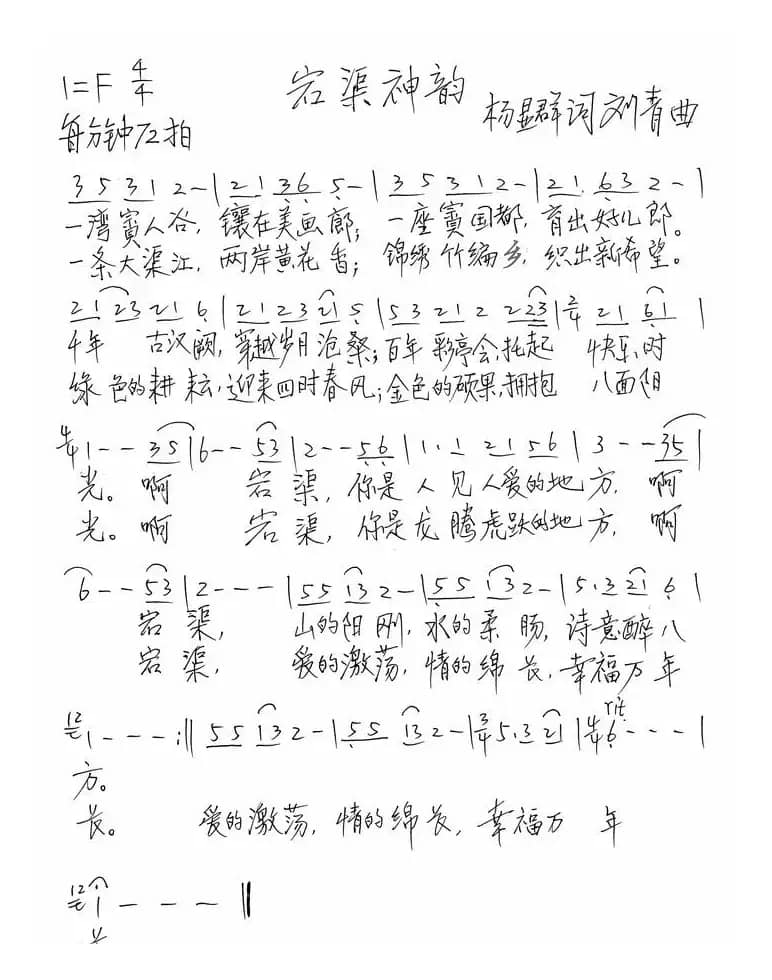 1=F 4/4 宕渠神韵
每分钟72拍 杨显群词 刘青曲
3 5 3 1 2 - | 2 1 3 6 5 - | 3 5 3 1 2 - | 2 1. 6 3 2 - |
一湾賨人谷, 镶在美画廊; 一座賨国都, 育出好儿郎。
一条大渠江, 两岸黄花香; 锦绣竹编乡, 织出新希望。
2 1 2 3 2 1 6 | 2 1 2 3 2 1 5 | 5 3 2 1 2 2 2 3 | 2/4 2 1 6 1 |
千年 古汉阙, 穿越岁月沧桑; 百年彩亭会, 托起 快乐时
绿色的耕耘, 迎来四时春风; 金色的硕果, 拥抱 八面阳
4/4 1 - - 3 5 | 6 - - 5 3 | 2 - - 5 6 | 1. 1 2 1 5 6 | 3 - - 3 5 |
光。啊 宕渠, 你是人见人爱的地方, 啊
光。啊 宕渠, 你是龙腾虎跃的地方, 啊
6 - - 5 3 | 2 - - - | 5 5 1 3 2 - | 5 5 1 3 2 - | 5. 3 2 1 6 |
宕渠, 山的阳刚, 水的柔肠, 诗意醉八
宕渠, 爱的激荡, 情的绵长, 幸福万年
12 1 - - - :|| 5 5 1 3 2 - | 5 5 1 3 2 - | 3/4 5. 3 2 1 | 4/4 6 - - - | rit.
方。
长。 爱的激荡, 情的绵长, 幸福万 年
12 1 - - - ||